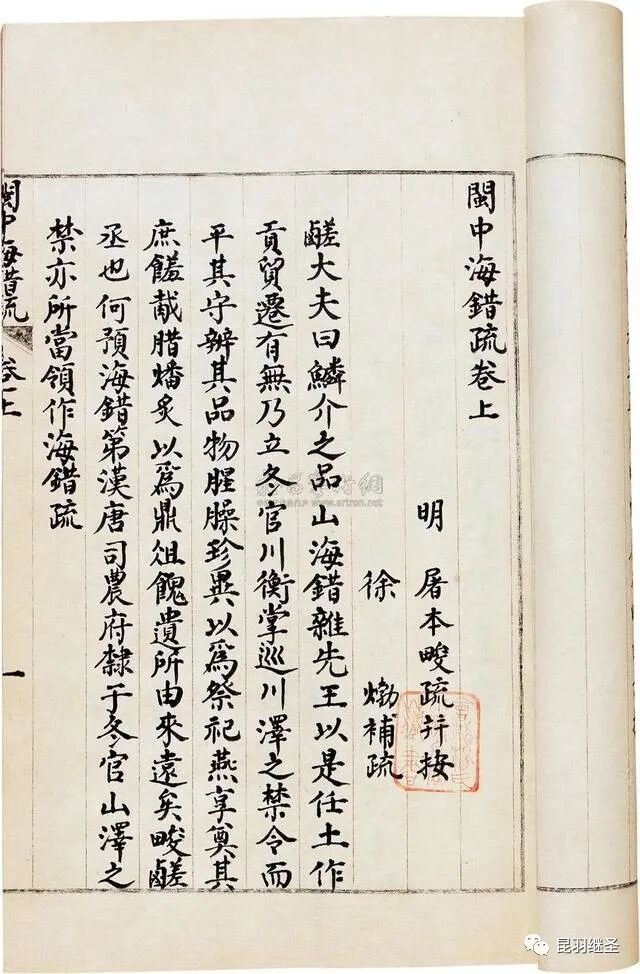 閩中海錯疏卷上
明 屠本畯疏并按
徐 𤊹補疏
鹺大夫曰鱗介之品山海錯雜先王以是任土作
貢貿遷有無乃立冬官川衡掌巡川澤之禁令而
平其守辨其品物腥臊珍異以爲祭祀燕享奠其
庶饈胾腊燔炙以爲鼎俎餽遺所由來遠矣畯鹺
丞也何預海錯第漢唐司農府隸于冬官山澤之
禁亦所當領作海錯疏
閩中海錯疏 卷上
一
www.artron.net
昆羽继圣